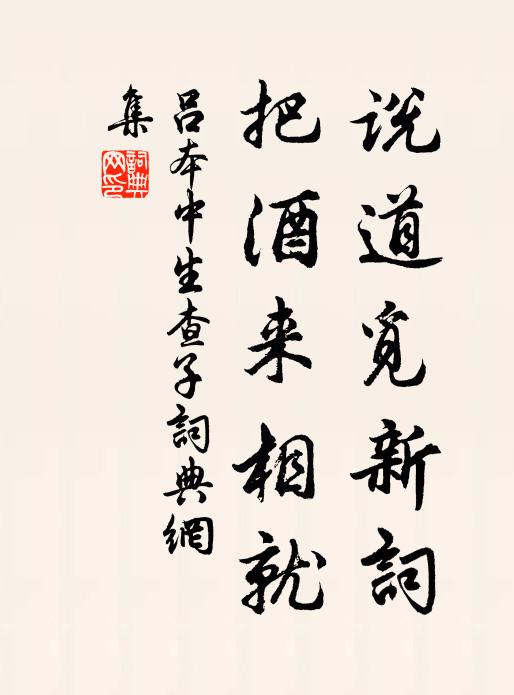 说道觅新詞
把酒来相就
吕本中生查子詞典網
集
詞典网印